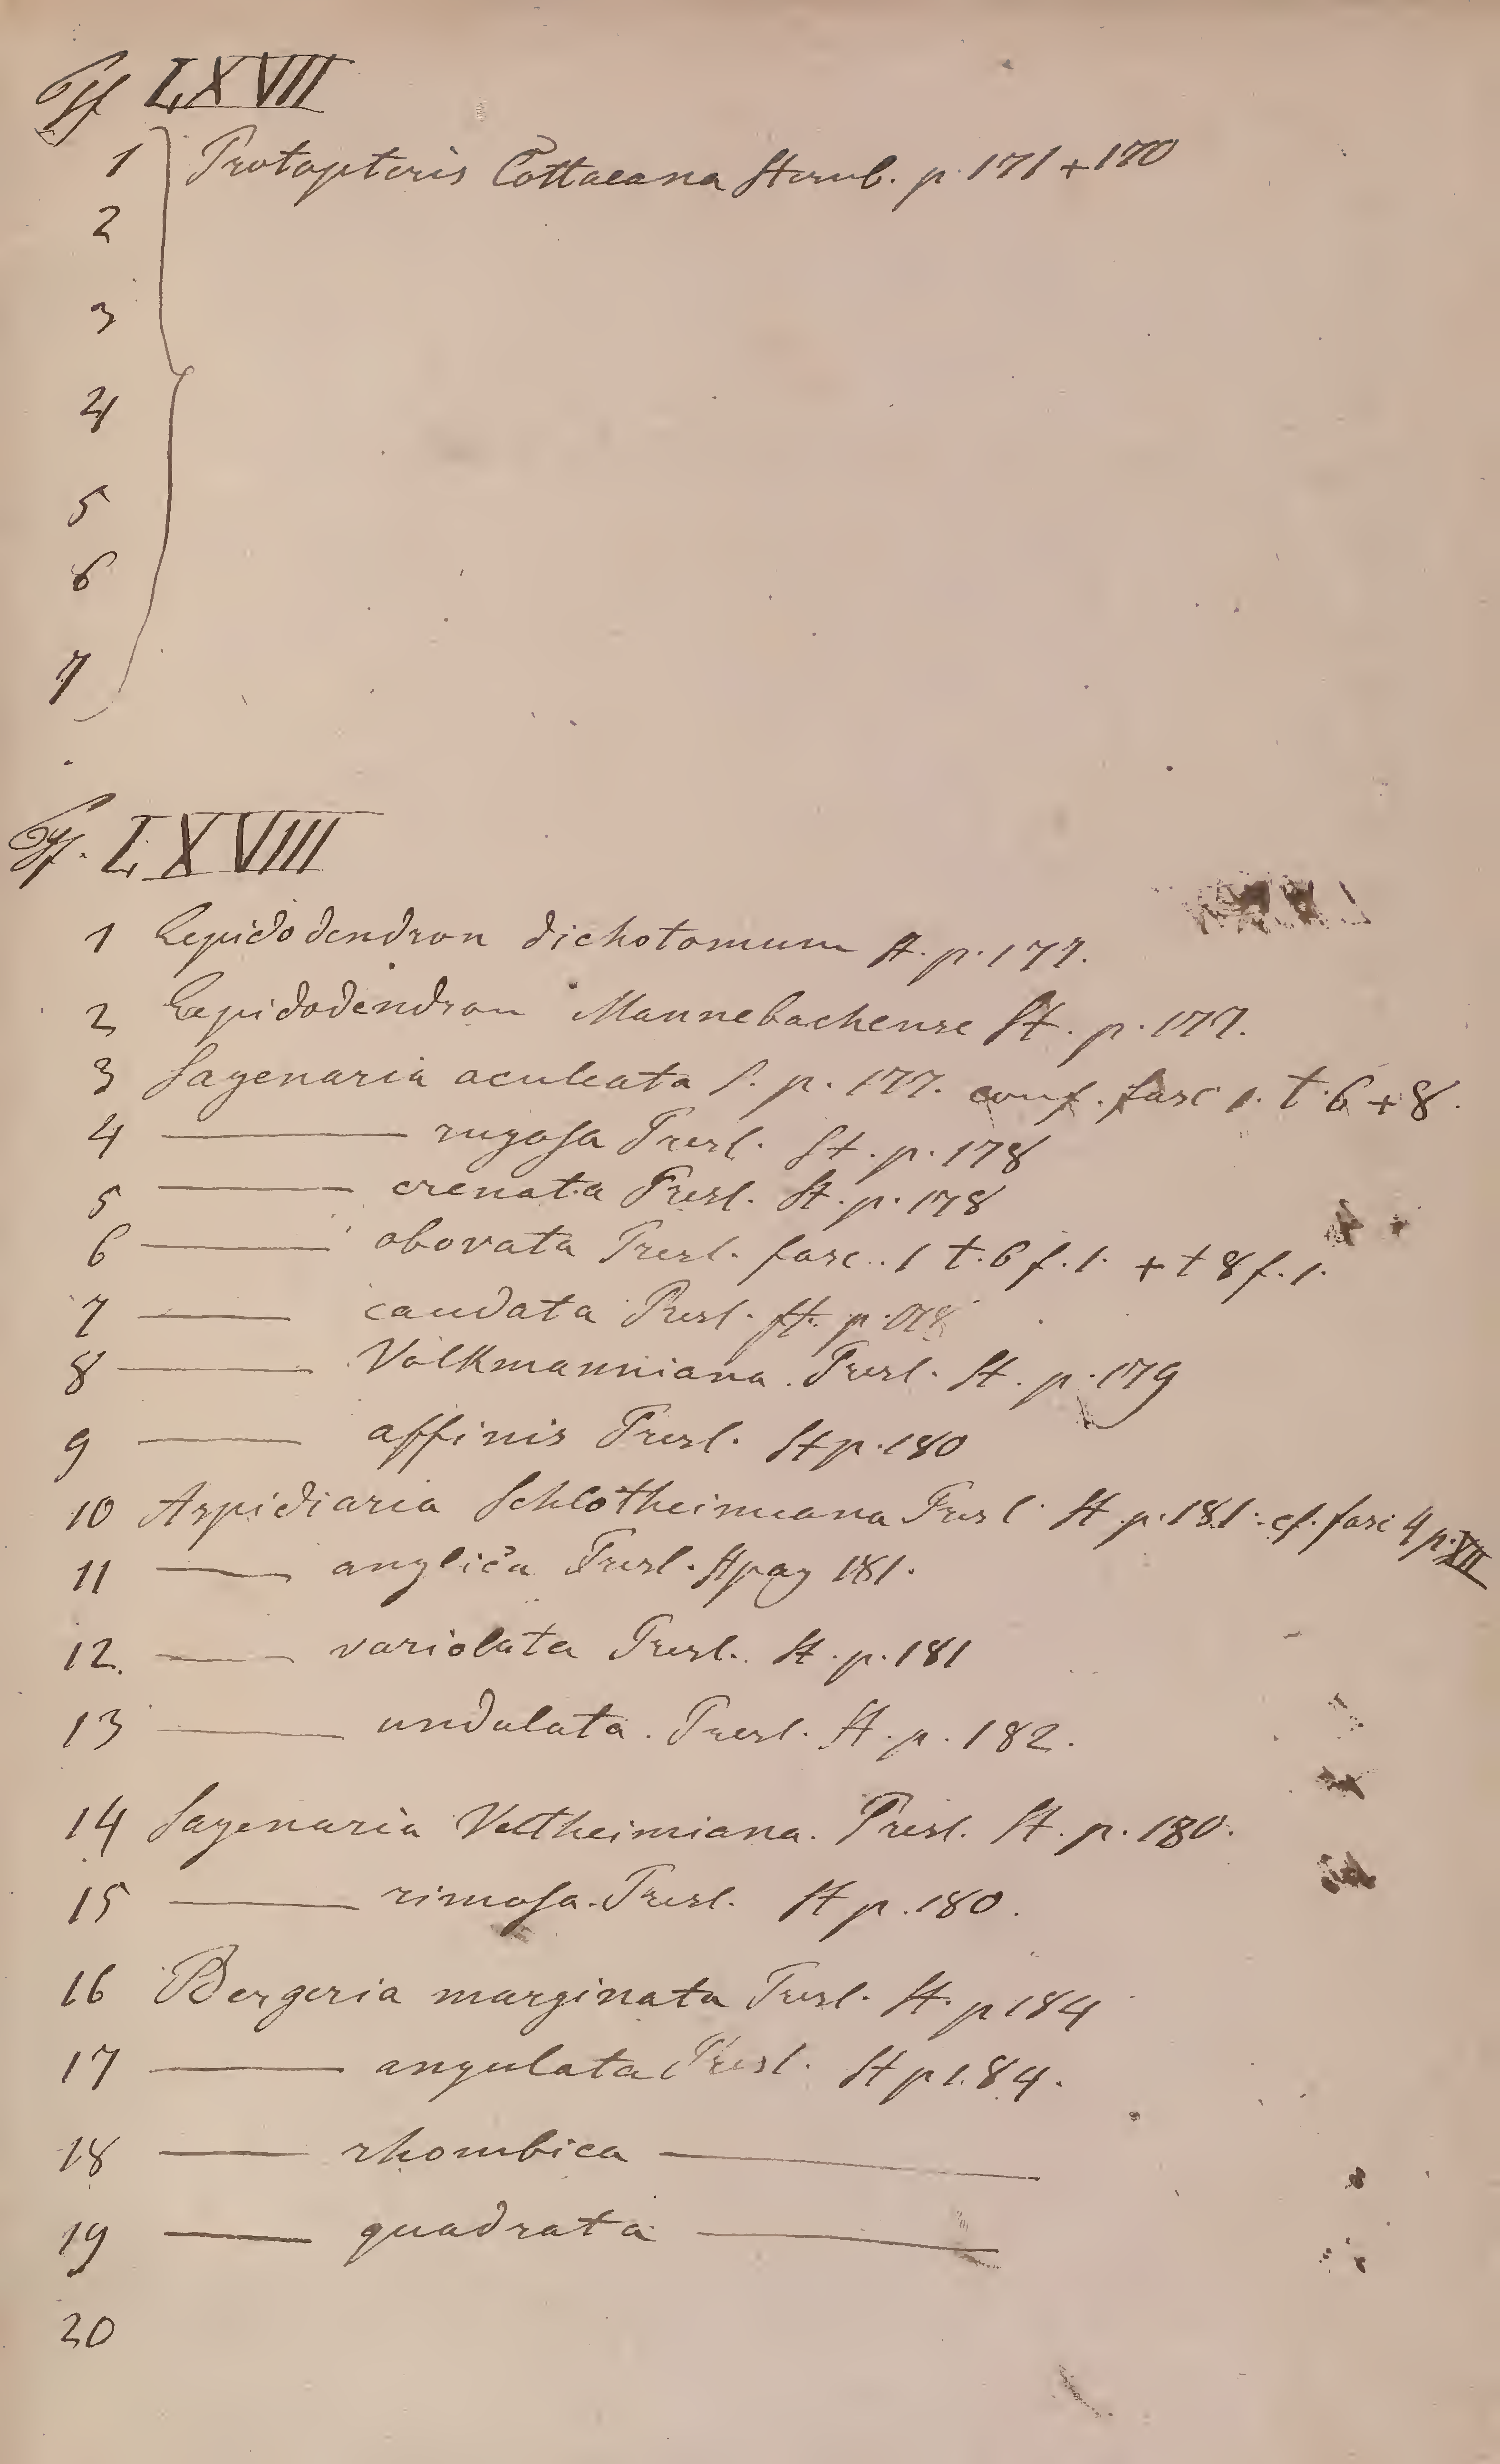 Tf LXVII
1 Protopteris Cottaeana Sternb. p. 171 + 170
2
3
4
5
6
7
Tf. LXVIII
1 Lepidodendron dichotomum St. p. 177.
2 Lepidodendron Mannebachense St. p. 177.
3 Sagenaria aculeata S. p. 177. conf. fasc 1. t. 6 + 8.
4 —— rugosa Presl. St. p. 178
5 —— crenata Presl. St. p. 178
6 —— obovata Presl. fasc. 1 t. 6 f. 1. + t 8 f. 1.
7 —— caudata Presl. St. p. 178
8 —— Volkmanniana. Presl. St. p. 179
9 —— affinis Presl. St p. 180
10 Aspidiaria Schlotheimiana Presl St p. 181. cf. fasc 4 p. XII
11 —— anglica Presl. St pag 181.
12. —— variolata Presl. St. p. 181
13 —— undulata. Presl. St. p. 182.
14 Sagenaria Veltheimiana. Presl. St. p. 180.
15 —— rimosa. Presl. St p. 180.
16 Bergeria marginata Presl. St. p 184
17 —— angulata Presl. St p 184.
18 —— rhombica ——
19 —— quadrata ——
20